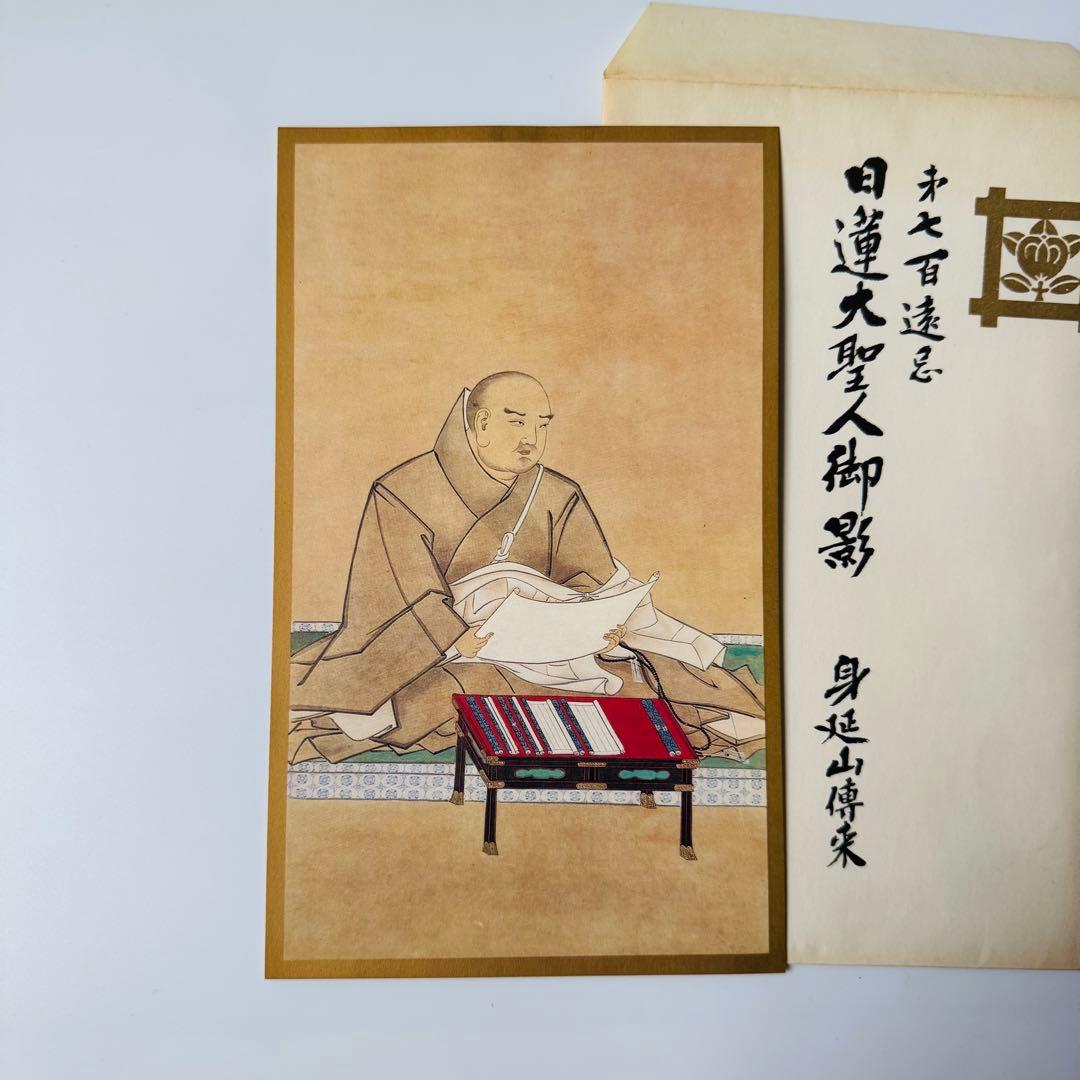 第七百遠忌
日蓮大聖人御影
身延山傳来